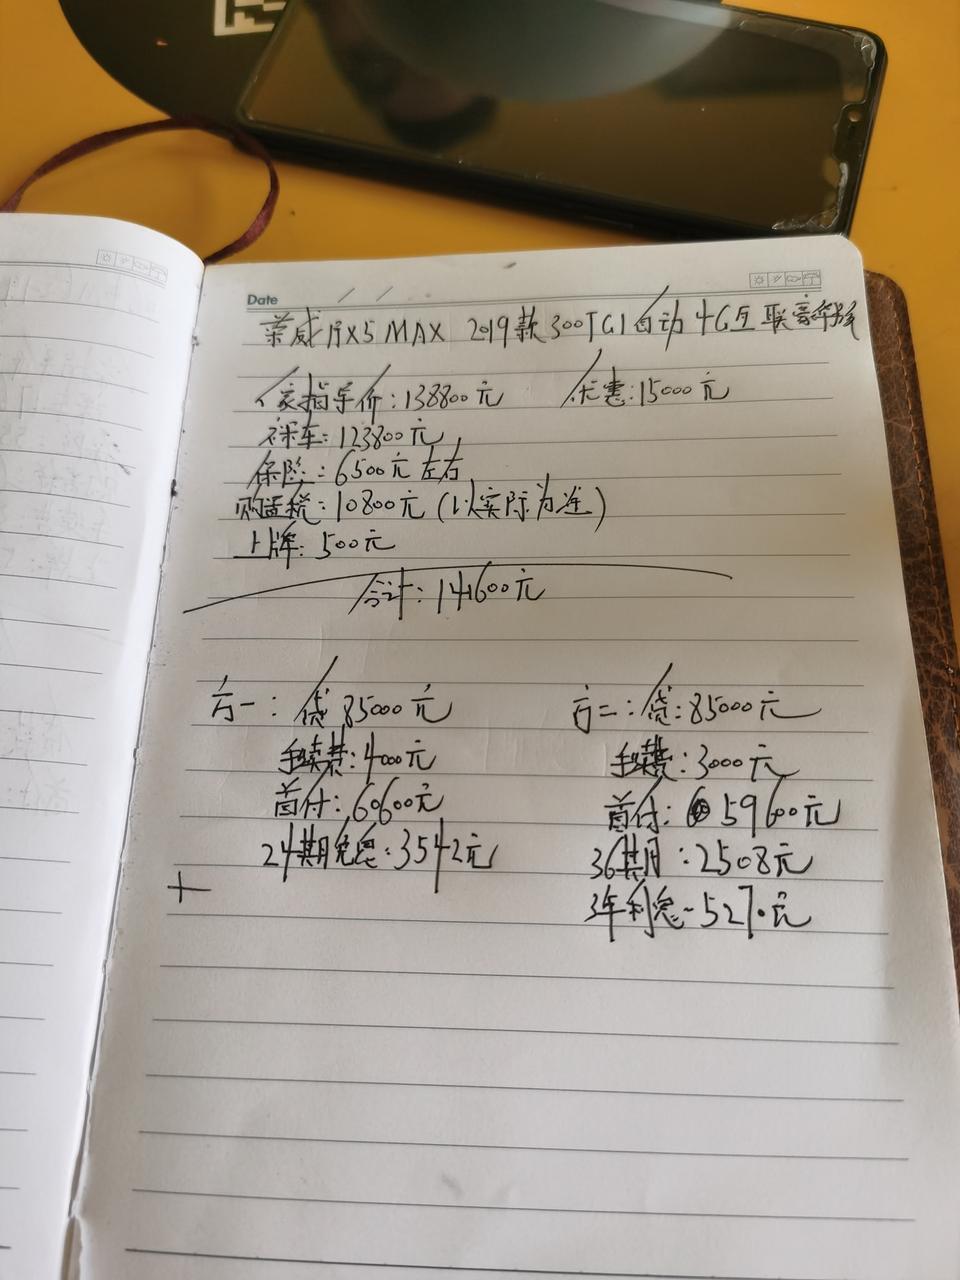 Date
荣威RX5 MAX 2019款300TGI自动4G互联豪华版
厂家指导价:138800元 优惠:15000元
裸车:123800元
保险:6500元左右
购置税:10800元(以实际为准)
上牌:500元
合计:141600元
方一:贷85000元
手续费:4000元
首付:60600元
24期免息:3542元
方二:贷:85000元
手续费:3000元
首付:59600元
36期:2508元
3年利息-5270元